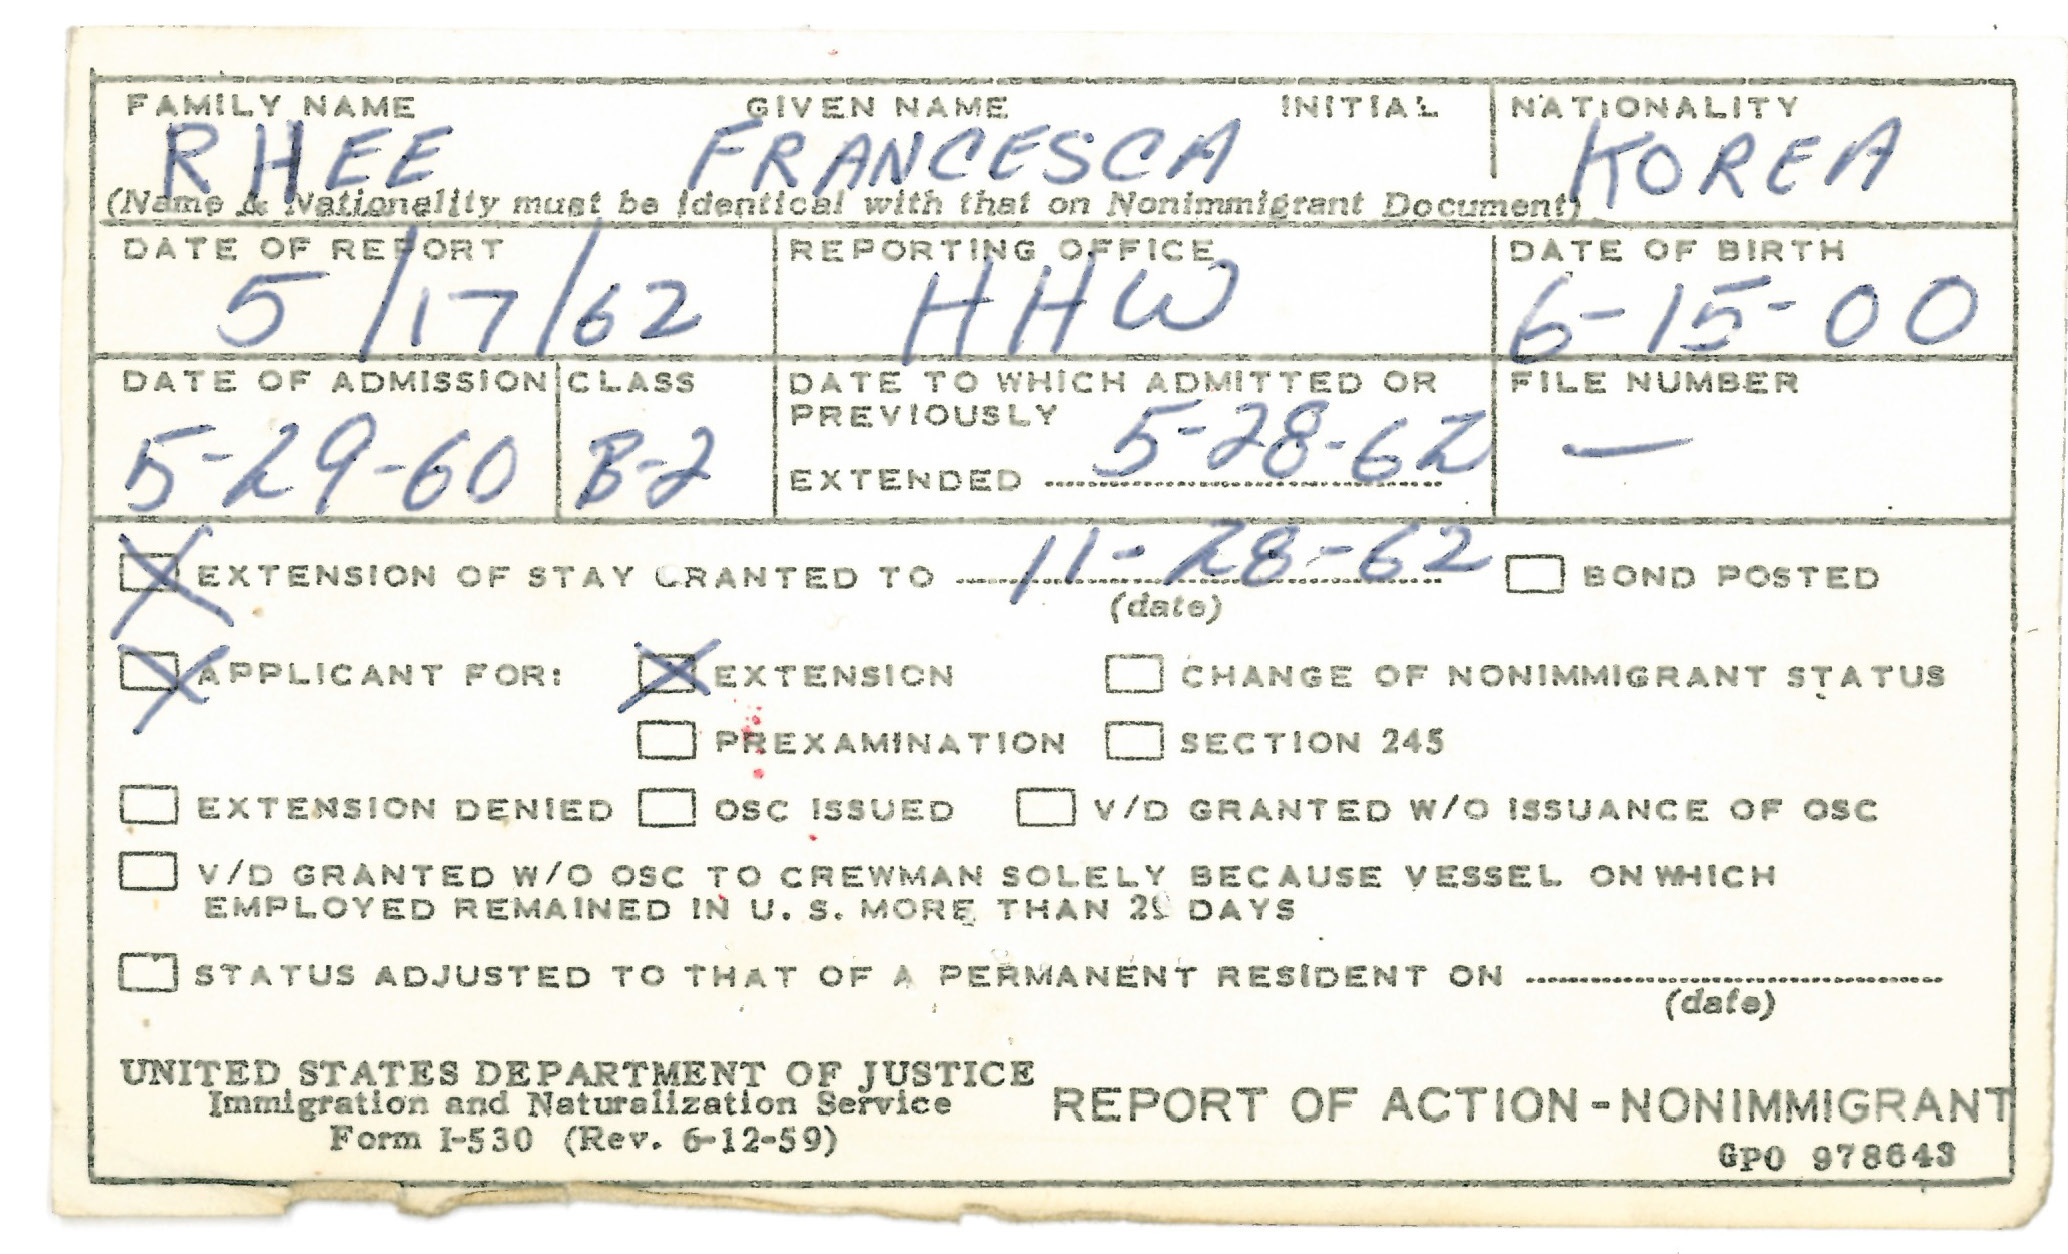 FAMILY NAME GIVEN NAME INITIAL NATIONALITY
RHEE FRANCESCA KOREA
(Name & Nationality must be identical with that on Nonimmigrant Document)
DATE OF REPORT REPORTING OFFICE DATE OF BIRTH
5/17/62 HHW 6-15-00
DATE OF ADMISSION CLASS DATE TO WHICH ADMITTED OR FILE NUMBER
PREVIOUSLY
5-29-60 B-2 EXTENDED 5-28-62 —
EXTENSION OF STAY GRANTED TO 11-28-62 BOND POSTED
(date)
APPLICANT FOR: EXTENSION CHANGE OF NONIMMIGRANT STATUS
PREXAMINATION SECTION 245
EXTENSION DENIED OSC ISSUED V/D GRANTED W/O ISSUANCE OF OSC
V/D GRANTED W/O OSC TO CREWMAN SOLELY BECAUSE VESSEL ON WHICH
EMPLOYED REMAINED IN U. S. MORE THAN 29 DAYS
STATUS ADJUSTED TO THAT OF A PERMANENT RESIDENT ON
(date)
UNITED STATES DEPARTMENT OF JUSTICE
Immigration and Naturalization Service
REPORT OF ACTION - NONIMMIGRANT
Form I-530 (Rev. 6-12-59)
GPO 978643